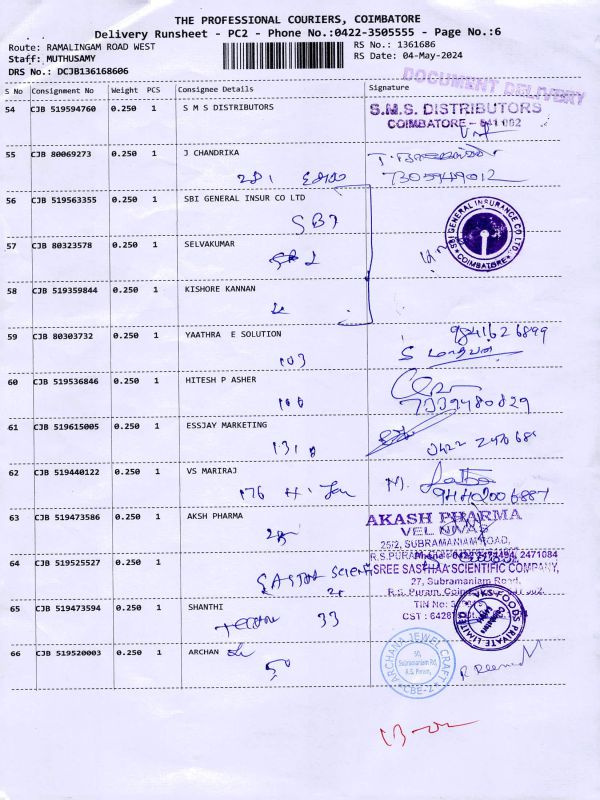 THE PROFESSIONAL COURIERS, COIMBATORE
Delivery Runsheet - PC2 - Phone No.:0422-3505555 - Page No.:6
Route: RAMALINGAM ROAD WEST
RS No.: 1361686
Staff: MUTHUSAMY
RS Date: 04-May-2024
DRS No.: DCJB136168606
DOCUMENT DELIVERY
S No Consignment No Weight PCS Consignee Details Signature
54 CJB 519594760 0.250 1 S M S DISTRIBUTORS
S.M.S. DISTRIBUTORS
COIMBATORE - 641 002
55 CJB 80069273 0.250 1 J CHANDRIKA
281
7305949012
56 CJB 519563355 0.250 1 SBI GENERAL INSUR CO LTD
SBI
SBI GENERAL INSURANCE CO. LTD.
COIMBATORE
57 CJB 80323578 0.250 1 SELVAKUMAR
58 CJB 519359844 0.250 1 KISHORE KANNAN
59 CJB 80303732 0.250 1 YAATHRA E SOLUTION
103
9841626899
60 CJB 519536846 0.250 1 HITESH P ASHER
7339480829
61 CJB 519615005 0.250 1 ESSJAY MARKETING
131
0422
62 CJB 519440122 0.250 1 VS MARIRAJ
176
M.
9442006887
63 CJB 519473586 0.250 1 AKSH PHARMA
AKASH PHARMA
VEL NIVAS
25/2, SUBRAMANIAM ROAD,
64 CJB 519525527 0.250 1
SASTHA SCIENTI
SREE SASTHAA SCIENTIFIC COMPANY,
27, Subramaniam Road,
65 CJB 519473594 0.250 1 SHANTHI
33
VKS FOODS PRIVATE LIMITED
66 CJB 519520003 0.250 1 ARCHAN
50
ARCHANA JEWEL CRAFT
50,
Subramaniam Rd,
R.S. Puram,
CBE-2